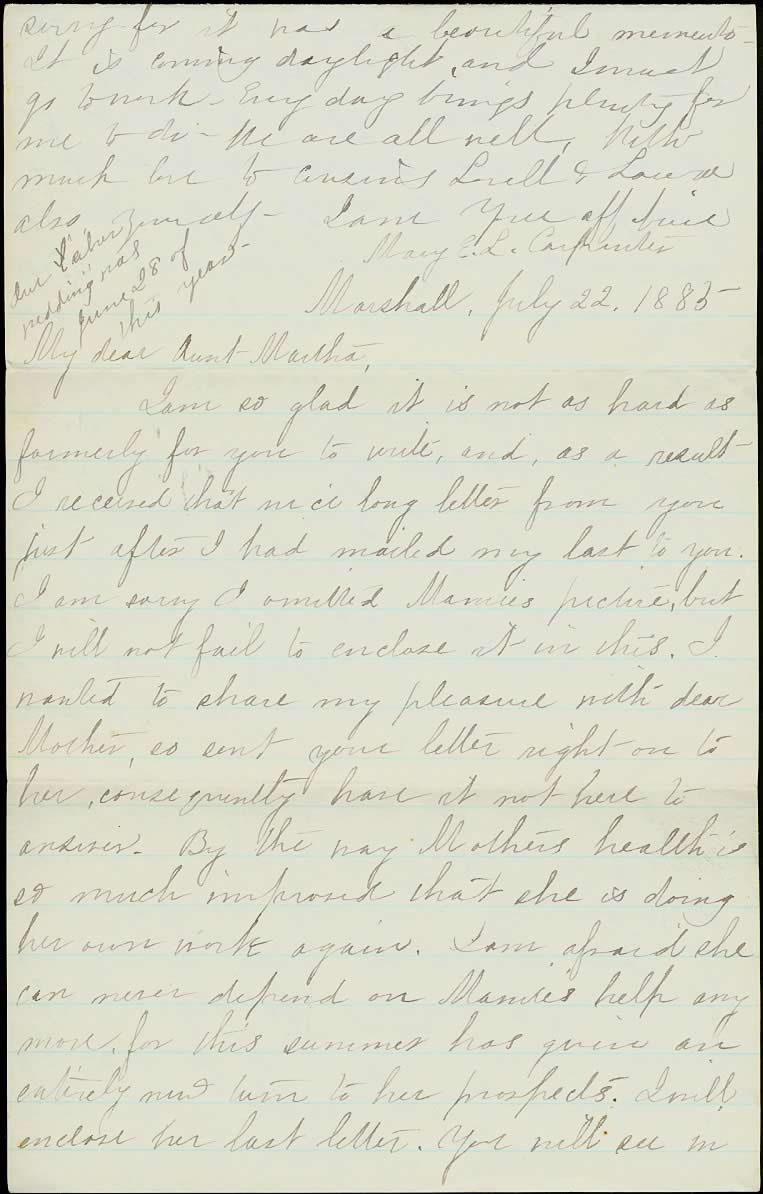 sorry for it was a beautiful memento-
It is coming daylight, and I must
go to work - Every day brings plenty for
me to do - We are all well, With
much love to cousins Lowell & Louise
also yourself - I am Your aff niece
Mary E. L. Carpenter
our
wedding was
June 28 of
this year-
Marshall, July 22, 1885-
My dear Aunt Martha,
I am so glad it is not as hard as
formerly for you to write, and, as a result-
I received that nice long letter from you
just after I had mailed my last to you.
I am sorry I omitted Mamies picture, but
I will not fail to enclose it in this. I
wanted to share my pleasure with dear
Mother, so sent your letter right on to
her, consequently have it not here to
answer. By the way Mothers health is
so much improved that she is doing
her own work again. I am afraid she
can never depend on Mamies help any
more, for this summer has given an
entirely new turn to her prospects. I will
enclose her last letter. You will see in